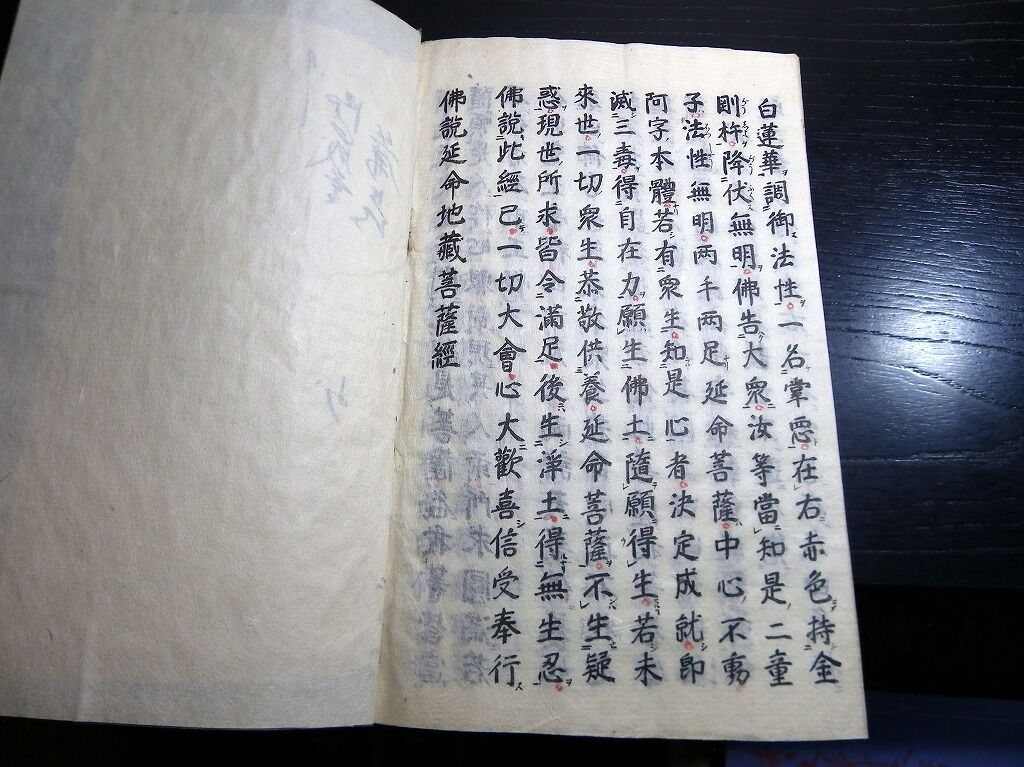 白蓮華調御法性一名掌悪在右赤色持金
剛杵降伏無明佛告大衆汝等當知是二童
子法性無明両手両足延命菩薩中心不動
阿字本體若有衆生知是心者決定成就即
滅三毒得自在力願生佛土隨願得生若未
來世一切衆生恭敬供養延命菩薩不生疑
惑現世所求皆令滿足後生淨土得無生忍
佛說此經已一切大會心大歡喜信受奉行
佛說延命地藏菩薩經